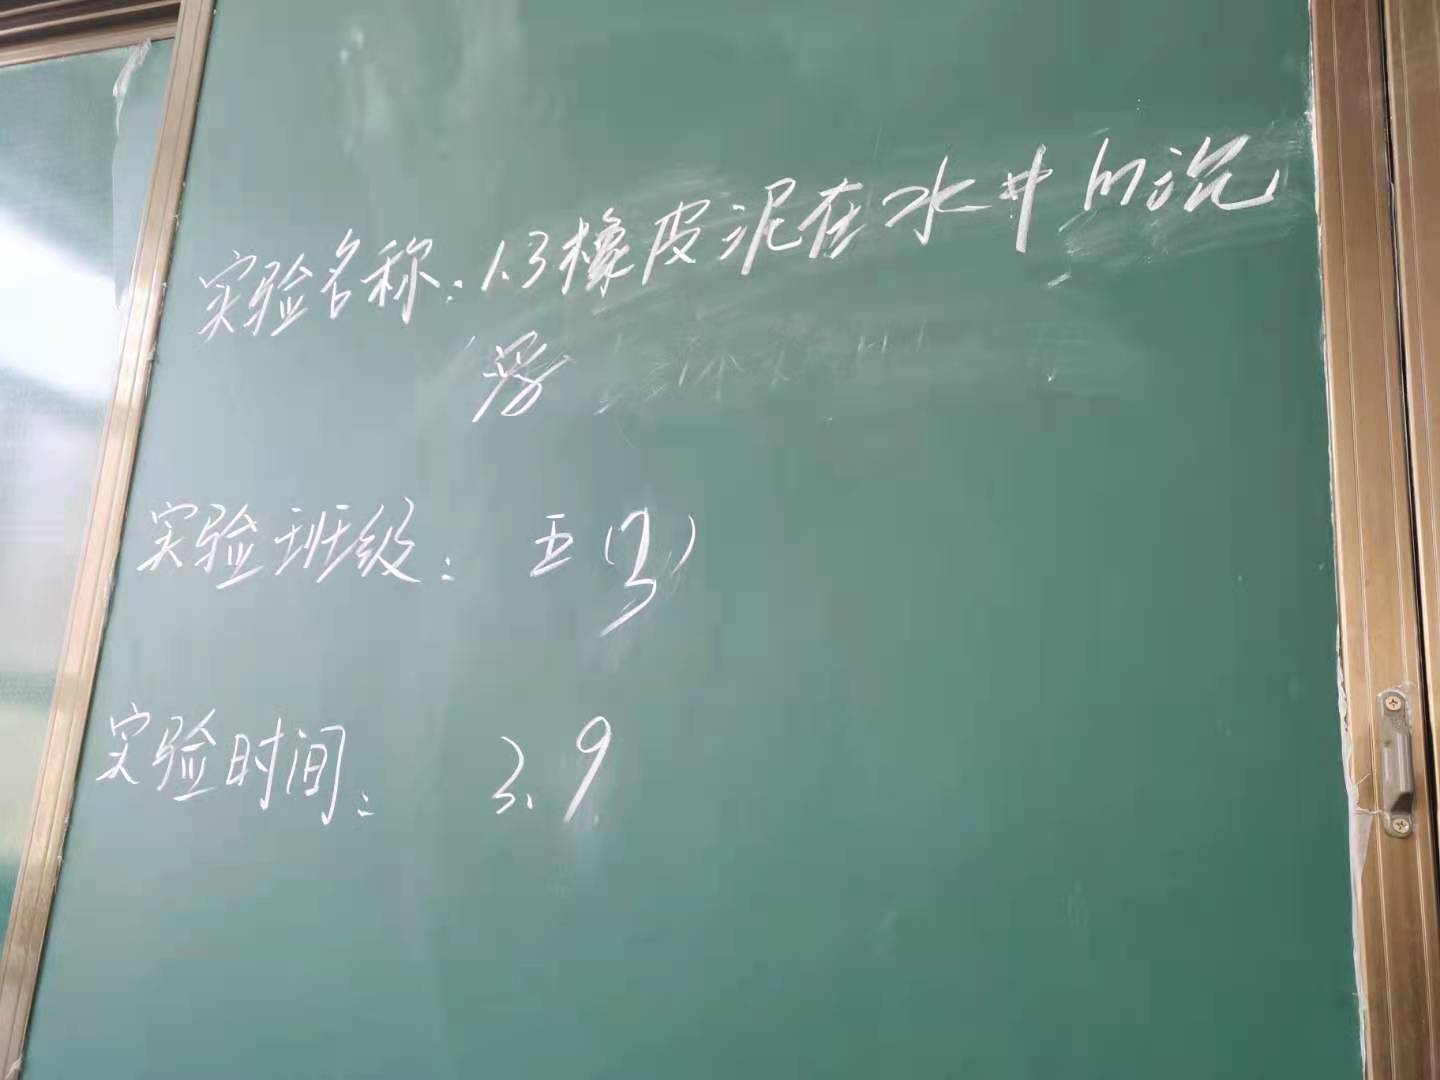 实验名称：1.3橡皮泥在水中的沉
浮
实验班级：五(3)
实验时间：3.9